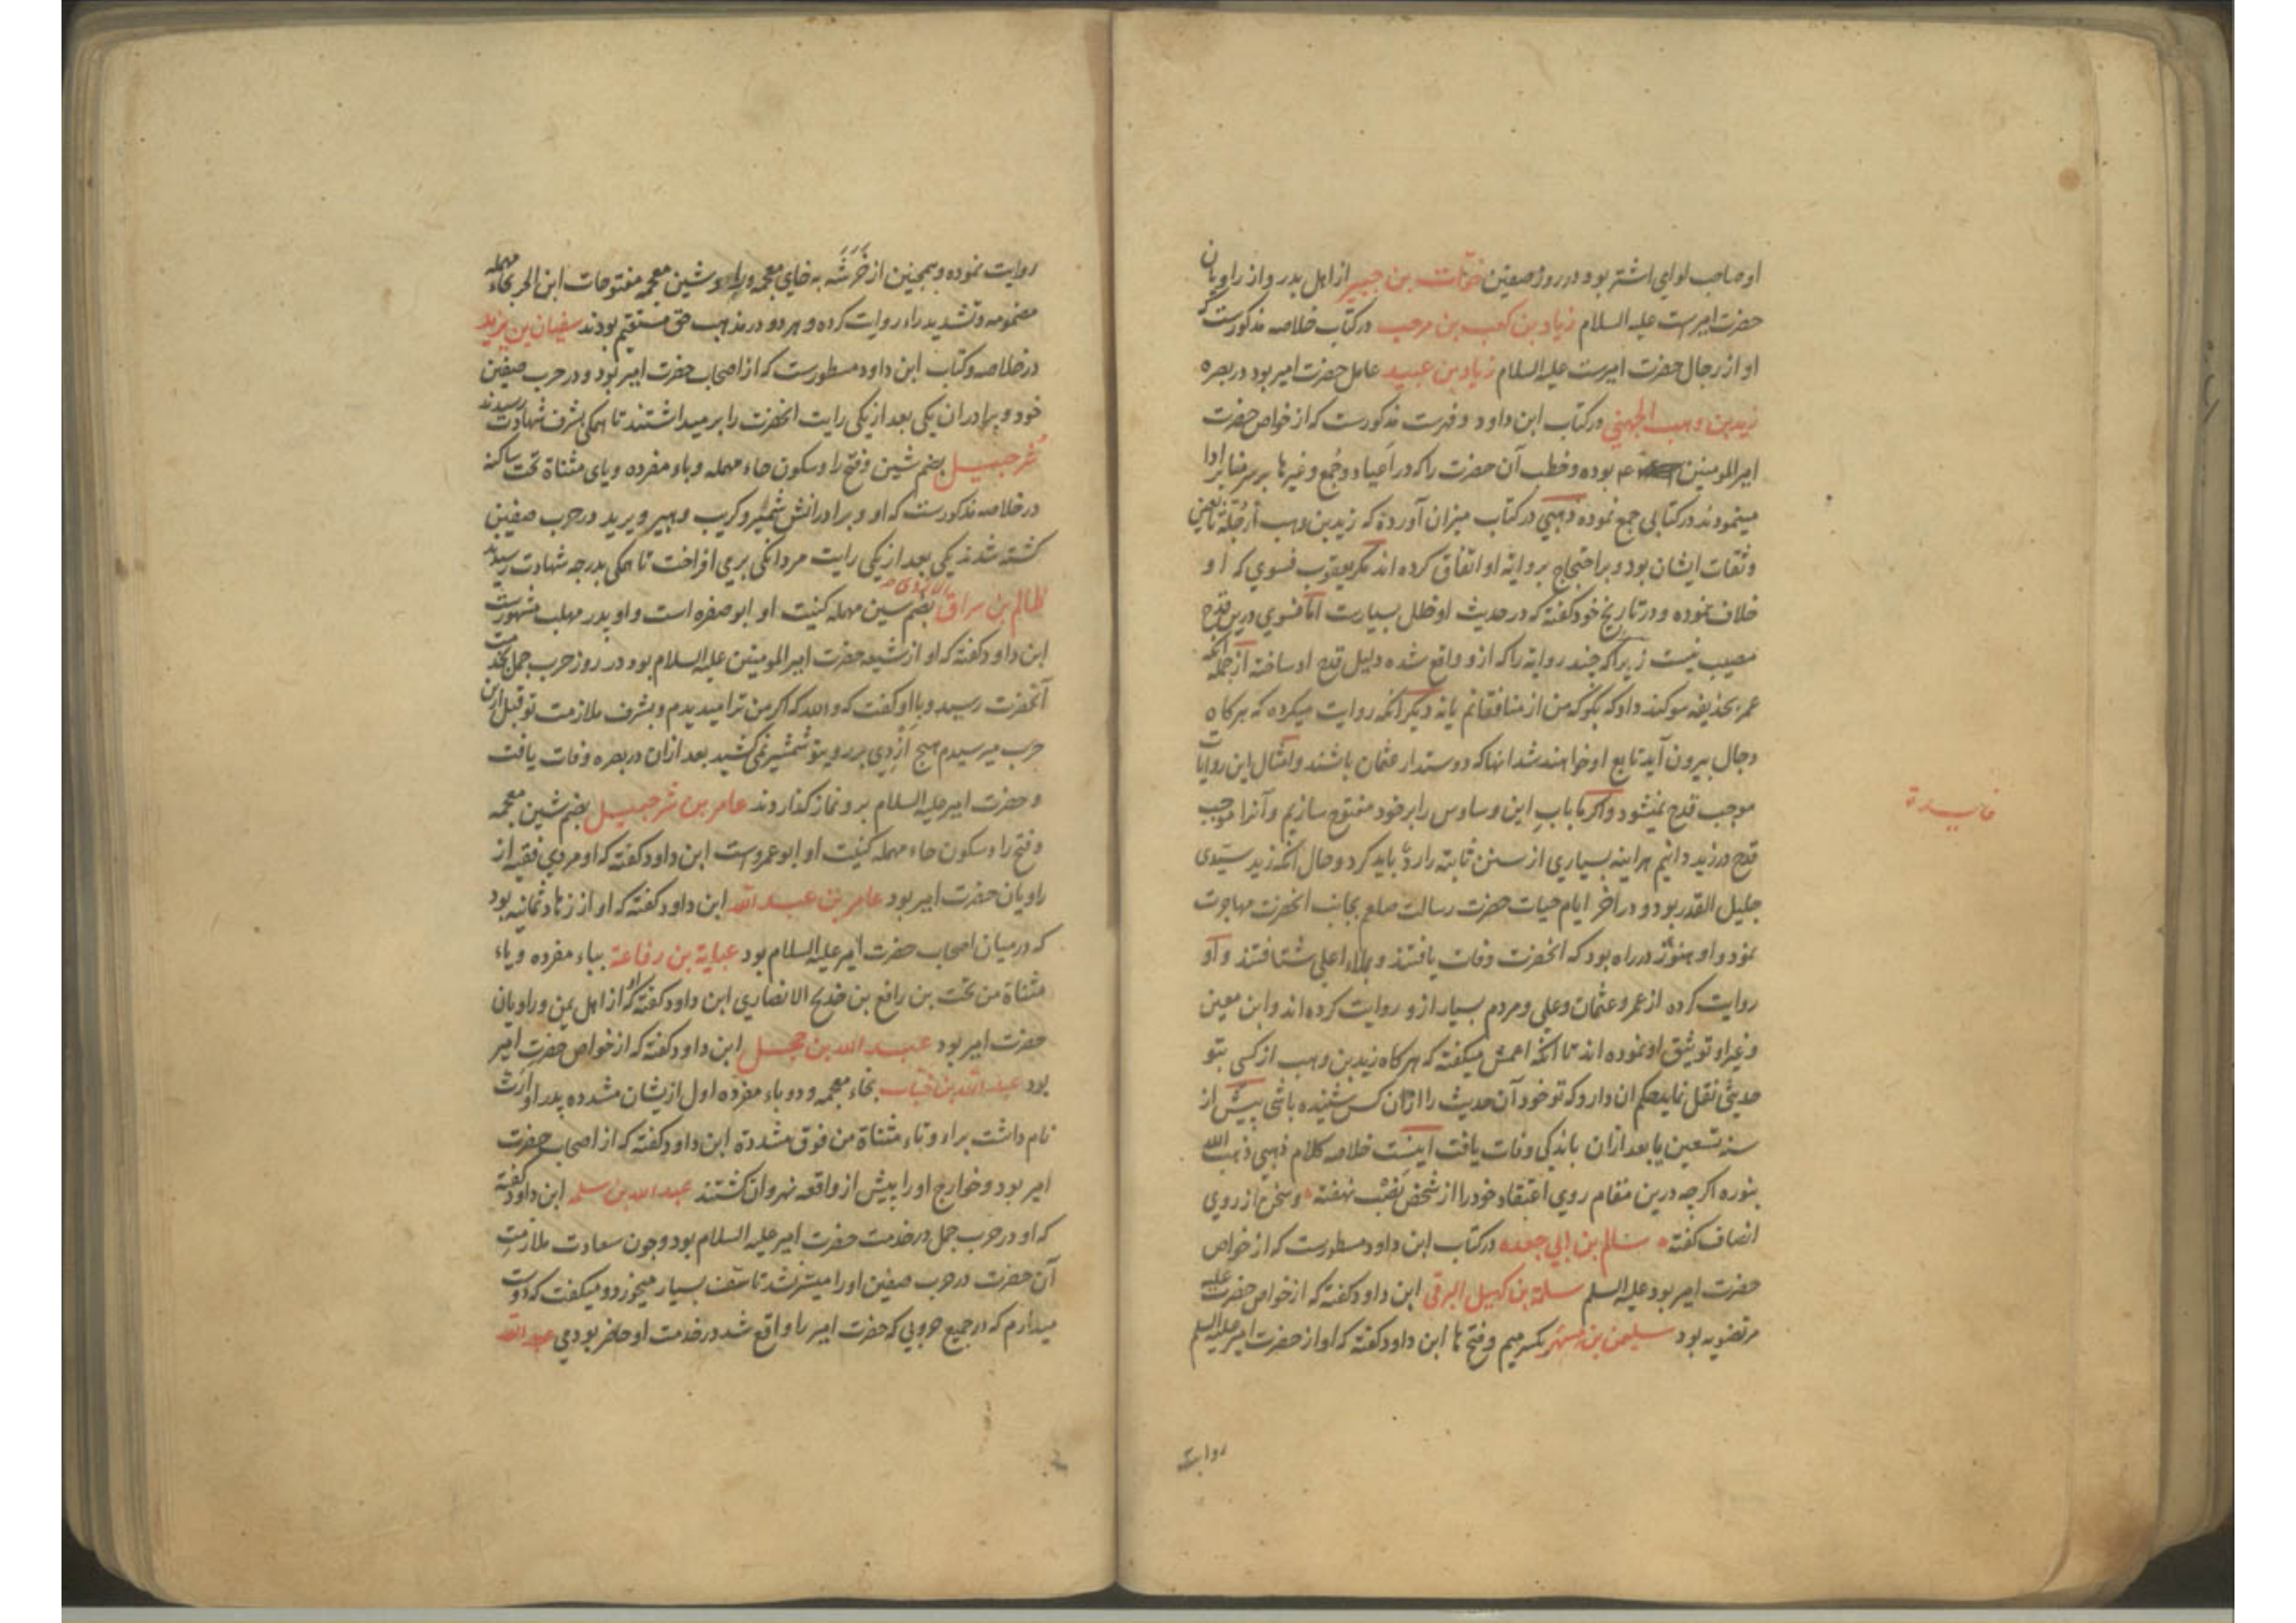 او صاحب لوای اشتر بود در روز صفین خوّات بن جبیر از اهل بدر و از راویان
حضرت امیرست علیه السلام زیاد بن کعب بن مرحب در کتاب خلاصه مذکورست که
او از رجال حضرت امیرست علیه السلام زیاد بن عبید عامل حضرت امیر بود در بصره
زید بن وهب الجهنی در کتاب ابن داود و فهرست مذکورست که از خواص حضرت
امیر المومنین ع م بوده و خطب آن حضرت را که در اعیاد و جُمع و غیرها بر سر منابر ادا
مینمودند در کتابی جمع نموده ذهبی در کتاب میزان آورده که زید بن وهب از جلّهٔ تابعین
و ثقات ایشان بود و بر احتجاج بروایة او اتفاق کرده اند مکر یعقوب فسوی که او
خلاف نموده و در تاریخ خود کفته که در حدیث او خلل بسیارست اما فسوی درین قدح
مصیب نیست زیرا که چند روایة را که ازو واقع شده دلیل قدح او ساخته از جمله آنکه
عمر بحذیفه سوکند داد که بکو که من از منافقانم یا نه دیکر آنکه روایت میکرده که هرکاه
دجال بیرون آید تابع او خواهند شد آنها که دوستدار عثمان باشند و امثال این روایات
فایدة
موجب قدح نمیشود و اکر ما باب این وساوس را بر خود مفتوح سازیم و آنرا موجب
قدح در زید دانیم هراینه بسیاری از سنن ثابته را ردّ باید کرد و حال آنکه زید سیّدی
جلیل القدر بود و در آخر ایام حیات حضرت رسالت صلعم بجانب آنحضرت مهاجرت
نمود و او هنوز در راه بود که آنحضرت وفات یافتند و بملاء اعلی شتافتند و او
روایت کرده از عمر و عثمان و علی و مردم بسیار ازو روایت کرده اند و ابن معین
و غیر او توثیق او نموده اند تا آنکه اعمش میکفته که هرکاه زید بن وهب از کسی بتو
حدیثی نقل نماید حکم آن دارد که تو خود آن حدیث را از آن کس شنیده باشی پیش از
سنه تسعین یا بعد ازان باندکی وفات یافت اینست خلاصه کلام ذهبی ذهب الله
بنوره اکر چه درین مقام روی اعتقاد خود را از شخص نصْب نهفته و سخن از روی
انصاف کفته سالم بن ابی جعده در کتاب ابن داود مسطورست که از خواص
حضرت امیر بود علیه السلم سلمة بن کهیل البرقی ابن داود کفته که از خواص حضرت علیه
مرتضویه بود سلیمن بن مسهر بکسر میم و فتح ها ابن داود کفته که او از حضرت امیر علیه السلم
روایت
روایت نموده و همچنین از خَرَشَه به خای معجمه و راء و شین معجمه مفتوحات ابن الحر بحاء مهمله
مضمومه و تشدید راء روایت کرده و هر دو در مذهب حق مستقیم بودند سفیان بن یزید
در خلاصه و کتاب ابن داود مسطورست که از اصحاب حضرت امیر بود و در حرب صفین
خود و برادران یکی بعد از یکی رایت آنحضرت را برمیداشتند تا همکی بشرف شهادت رسیدند
شُرحبیل بضم شین و فتح را و سکون حاء مهمله و باء مفرده و یای مثناة تحت ساکنه
در خلاصه مذکورست که او و برادرانش شُمیْر و کریب و هبیر و یرید در حرب صفین
کشته شدند یکی بعد از یکی رایت مردانکی برمی افراخت تا همکی بدرجه شهادت رسیدند
ظالم بن سراق بضم سین مهمله کنیت او ابو صفره است و او پدر مهلب مشهورست
ابن داود کفته که او از شیعه حضرت امیر المومنین علیه السلام بود در روز حرب جمل بخدمت
آنحضرت رسید و با او کفت که والله که اکر من ترا میدیدم و بشرف ملازمت تو قبل ازین
حرب میرسیدم هیچ اَزْدِی بر روی تو شمشیر نمیکشید بعد ازان در بصره وفات یافت
و حضرت امیر علیه السلام برو نماز کذاردند عامر بن شرحبیل بضم شین معجمه
و فتح را و سکون حاء مهمله کنیت او ابو عمروست ابن داود کفته که او مردی فقیه از
راویان حضرت امیر بود عامر بن عبد الله ابن داود کفته که او از زهاد ثمانیه بود
که درمیان اصحاب حضرت امیر علیه السلام بود عبایة بن رفاعة بباء مفرده و یاء
مثناة من تحت بن رافع بن خدیج الانصاری ابن داود کفته که او از اهل یمن و راویان
حضرت امیر بود عبد الله بن حجل ابن داود کفته که از خواص حضرت امیر
بود عبد الله بن خبّاب بخاء معجمه و دو باء مفرده اول ازیشان مشدده پدر او ارتّ
نام داشت براء و تاء مثناة من فوق مشددة ابن داود کفته که از اصحاب حضرت
امیر بود و خوارج او را پیش از واقعه نهروان کشتند عبد الله بن سلمه ابن داود کفته
که او در حرب جمل در خدمت حضرت امیر علیه السلام بود و چون سعادت ملازمت
آن حضرت در حرب صفین او را میسر نشد تاسّف بسیار میخورد و میکفت که دوست
میدارم که در جمیع حروبی که حضرت امیر را واقع شد در خدمت او حاضر بودمی عبد الله